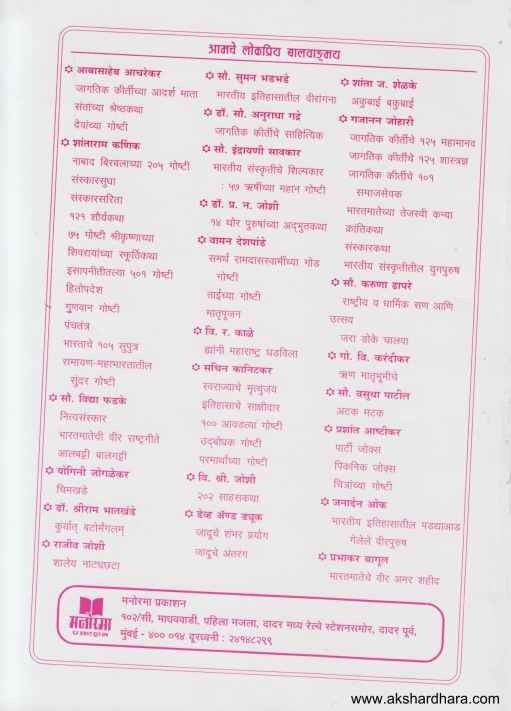 आमचे लोकप्रिय बालवाङ्मय
✡ आबासाहेब आचरेकर
जागतिक कीर्तीच्या आदर्श माता
संतांच्या श्रेष्ठकथा
देवांच्या गोष्टी
✡ शांताराम कर्णिक
नाबाद बिरबलाच्या २०५ गोष्टी
संस्कारसुधा
संस्कारसरिता
१२१ शौर्यकथा
७५ गोष्टी श्रीकृष्णाच्या
शिवरायांच्या स्फूर्तिकथा
इसापनीतीतल्या ५०१ गोष्टी
हितोपदेश
गुणवान गोष्टी
पंचतंत्र
भारताचे १०५ सुपुत्र
रामायण-महाभारतातील
सुंदर गोष्टी
✡ सौ. विद्या फडके
नित्यसंस्कार
भारतमातेची वीर राष्ट्रगीते
आलबट्टी बालगट्टी
✡ योगिनी जोगळेकर
चिमखडे
✡ डॉ. श्रीराम भातखंडे
कुर्यात् बटोर्मंगलम्
✡ राजीव जोशी
शालेय नाट्यछटा
✡ सौ. सुमन भडभडे
भारतीय इतिहासातील वीरांगना
✡ डॉ. सौ. अनुराधा गद्रे
जागतिक कीर्तीचे साहित्यिक
✡ सौ. इंद्रायणी सावकार
भारतीय संस्कृतीचे शिल्पकार
: ५७ ऋषींच्या महान गोष्टी
✡ डॉ. प्र. न. जोशी
१४ थोर पुरुषांच्या अद्भुतकथा
✡ वामन देशपांडे
समर्थ रामदासस्वामींच्या गोड
गोष्टी
ताईच्या गोष्टी
मातृपूजन
✡ वि. र. काळे
ह्यांनी महाराष्ट्र घडविला
✡ सचिन कानिटकर
स्वराज्याचे मृत्युंजय
इतिहासाचे साक्षीदार
१०० आवडत्या गोष्टी
उद्बोधक गोष्टी
परमार्थाच्या गोष्टी
✡ वि. श्री. जोशी
२०२ साहसकथा
✡ डेव्ह ॲण्ड ड्यूक
जादूचे शंभर प्रयोग
जादूचे अंतरंग
✡ शांता ज. शेळके
अकुबाई बकुबाई
✡ गजानन जोहारी
जागतिक कीर्तीचे १२५ महामानव
जागतिक कीर्तीचे १२५ शास्त्रज्ञ
जागतिक कीर्तीचे १०१
समाजसेवक
भारतमातेच्या तेजस्वी कन्या
क्रांतिकथा
संस्कारकथा
भारतीय संस्कृतीतील युगपुरुष
✡ सौ. करुणा ढापरे
राष्ट्रीय व धार्मिक सण आणि
उत्सव
जरा डोके चालवा
✡ गो. वि. करंदीकर
ऋण मातृभूमीचे
✡ सौ. वसुधा पाटील
अटक मटक
✡ प्रशांत आष्टीकर
पार्टी जोक्स
पिकनिक जोक्स
चित्रांच्या गोष्टी
✡ जनार्दन ओक
भारतीय इतिहासातील पडद्याआड
गेलेले वीरपुरुष
✡ प्रभाकर बागूल
भारतमातेचे वीर अमर शहीद
मनोरमा
मनोरमा प्रकाशन
१०२/सी, माधववाडी, पहिला मजला, दादर मध्य रेल्वे स्टेशनसमोर, दादर पूर्व,
मुंबई - ४०० ०१४ दूरध्वनी : २४१४८२९९
www.akshardhara.com